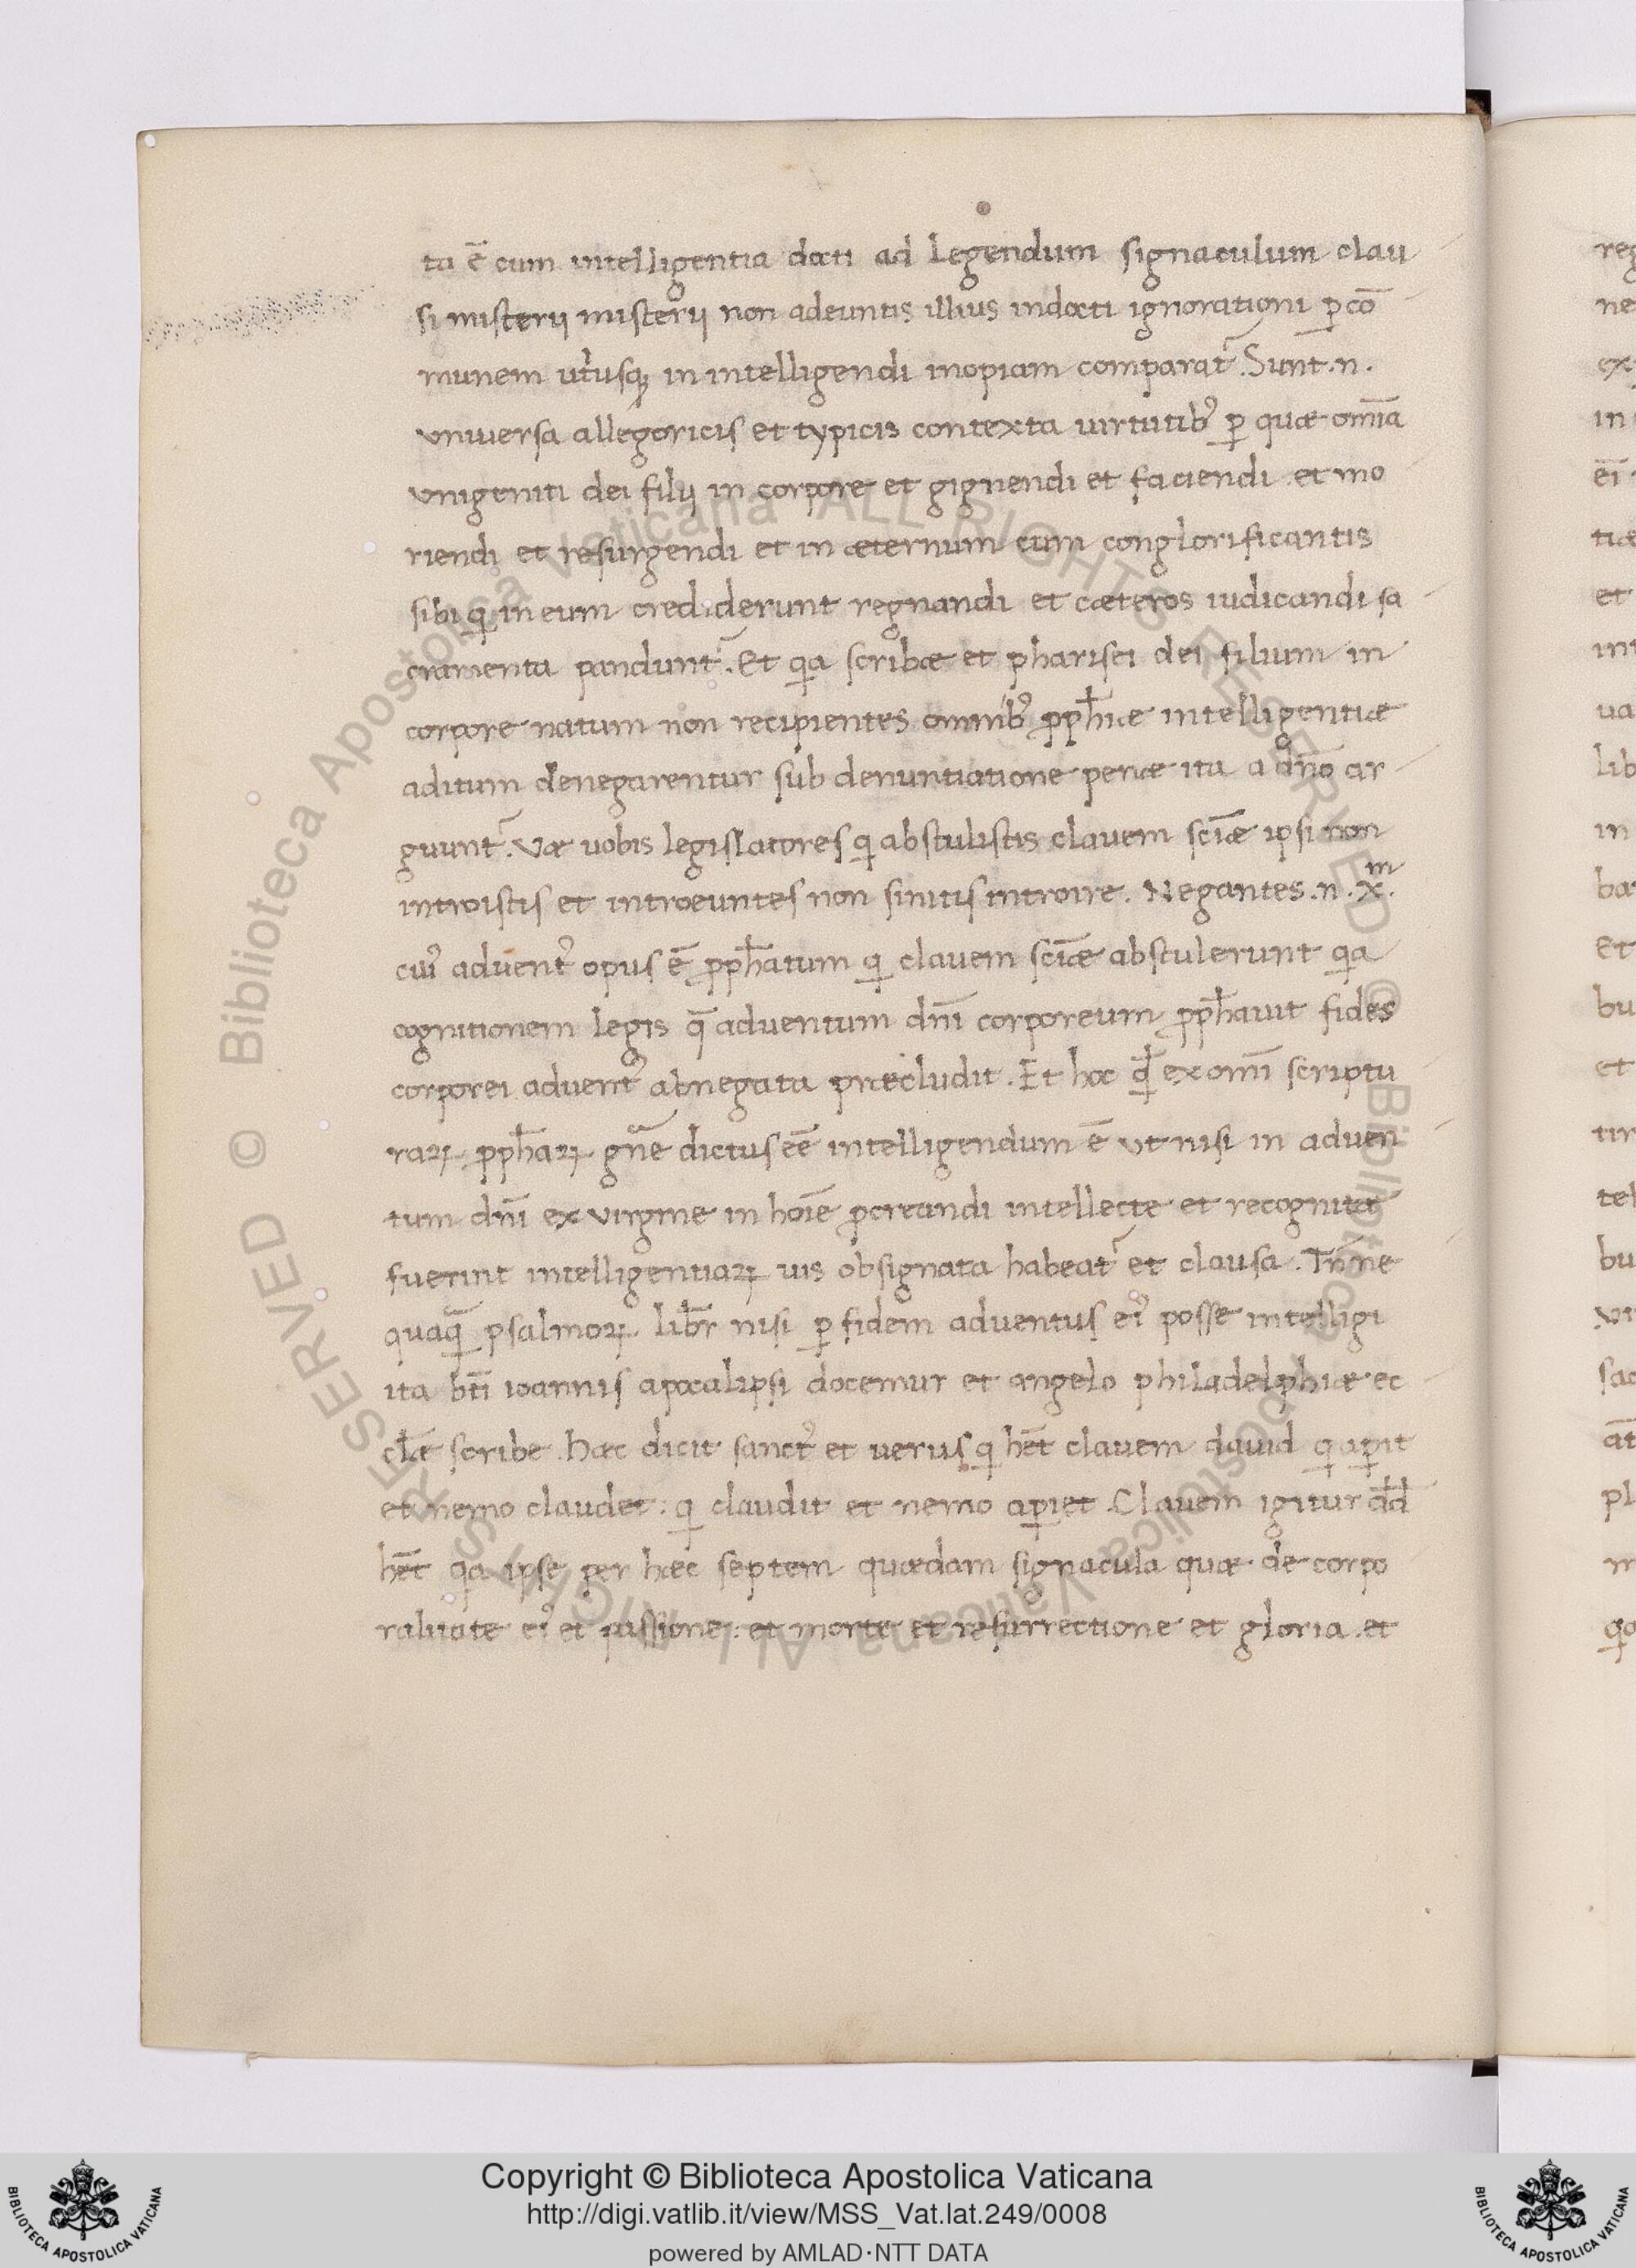 ta ē cum intelligentia docti ad legendum signaculum clau
si misterij misterij non adeuntis illius indocti ignorationi ꝑ cō
munem utriusqꝫ in intelligendi inopiam comparat᷑. Sunt .n.
vniuersa allegoricis et typicis contexta uirtutib᷒ ꝑ quæ omīa
vnigeniti dei filij in corpore et gignendi et faciendi et mo
riendi et resurgendi et in æternum cum conglorificantis
sibi q̇ in eum crediderunt regnandi et cæteros iudicandi sa
cramenta pandunt᷑. Et qa scribæ et pharisei dei filium in
corpore natum non recipientes omnib᷒ ꝓph̄icæ intelligentiæ
aditum denegarentur sub denuntiatione penæ ita a dn̄o ar
guunt᷑. Væ uobis legislatores q abstulistis clauem sciǣ ipsi non
introistis et introeuntes non sinitis introire. Negantes .n. x̄m.
cui᷒ aduent᷒ opus ē ꝓph̄atum q clauem sciǣ abstulerunt qa
cognitionem legis q̄ aduentum dn̄i corporeum ꝓph̄auit fides
corporei aduent᷒ abnegata præcludit. Et hoc qd̄ ex omī scriptu
raꝝ ꝓph̄aꝝ gn̄e dictus eē intelligendum ē vt nisi in aduen
tum dn̄i ex virgine in hoīe ꝓcreandi intellecte et recognitæ
fuerint intelligentiaꝝ uis obsignata habeat᷑ et clausa. Tn̄ ne
quaq̄ psalmoꝝ libr̄ nisi ꝑ fidem aduentus ei᷒ posse intelligi
ita bt̄i ioannis apocalipsi docemur et angelo philadelphiæ ec
cl̄æ scribe. Hæc dicit sanct᷒ et uerus q hēt clauem dauid q aꝑit
et nemo claudet: q claudit et nemo aꝑiet. Clauem igitur dd̄
hēt qa ipse per hæc septem quædam signacula quæ de corpo
ralitate ei᷒ et passione: et morte et resurrectione et gloria . et
reg
ne
ex
in
eī
tiæ
et
int
ua
lib
in
ba
Et
bu
et
tin
tel
bu
vi
sac
āt
pl
m
qa
Copyright © Biblioteca Apostolica Vaticana
http://digi.vatlib.it/view/MSS_Vat.lat.249/0008
powered by AMLAD·NTT DATA
BIBLIOTECA APOSTOLICA VATICANA
BIBLIOTECA APOSTOLICA VATICANA
© Biblioteca Apostolica Vaticana ALL RIGHTS RESERVED © Biblioteca Apostolica Vaticana ALL RIGHTS RESERVED